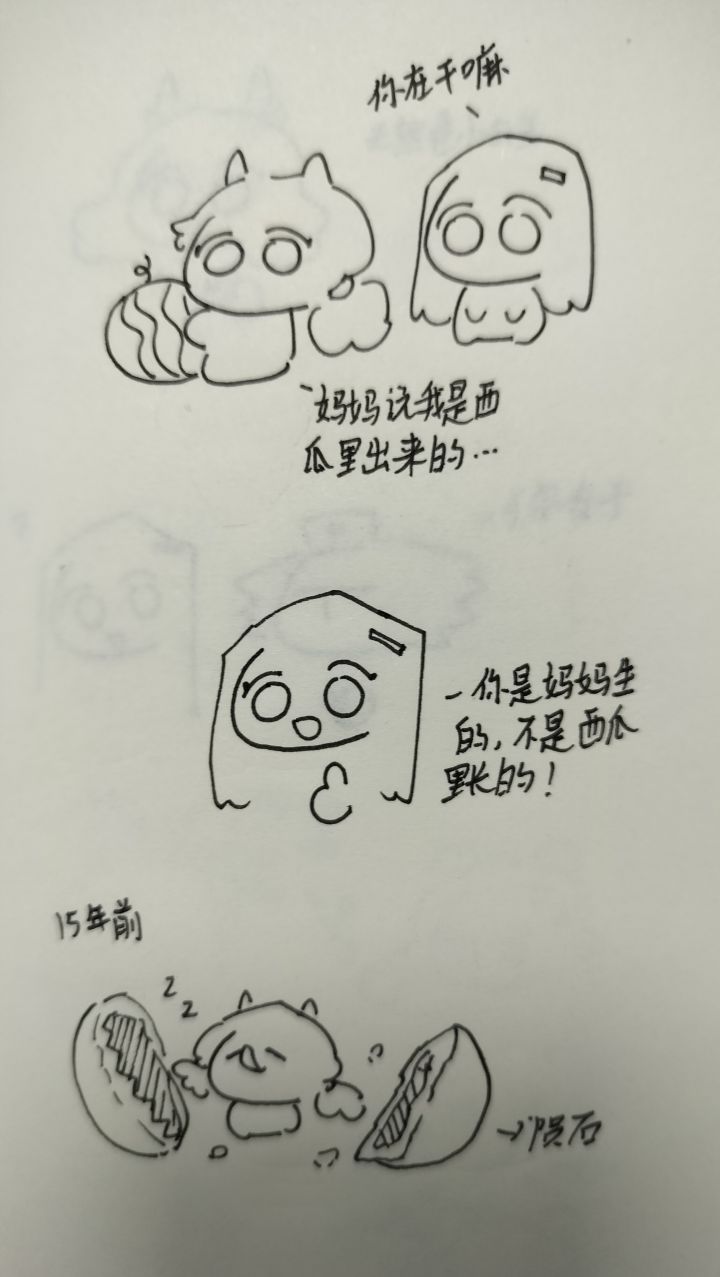 你在干嘛
妈妈说我是西
瓜里出来的…
你是妈妈生
的,不是西瓜
里长的!
15年前
z
z
→陨石